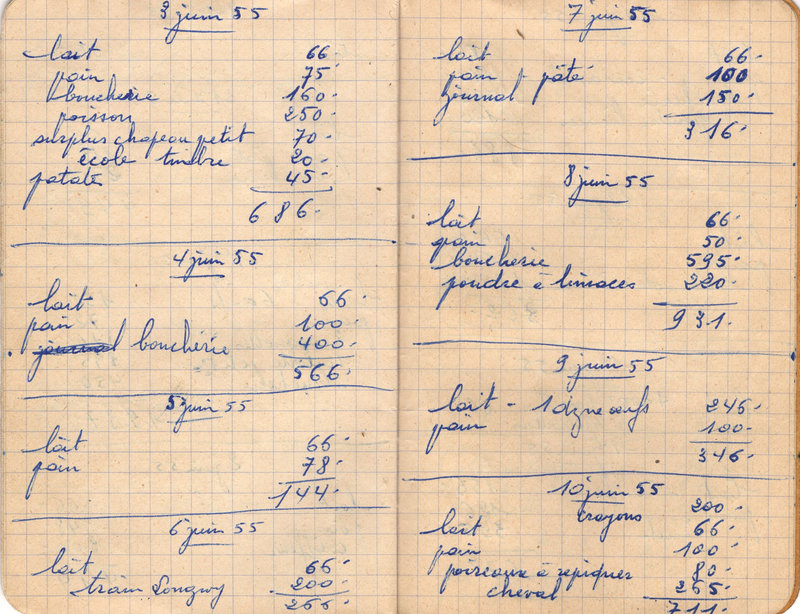 3 juin 55
lait 66.
pain 75.
boucherie 160.
poisson 250.
surplus chapeau petit 70.
école timbre 20.
patates 45.
686.
4 juin 55
lait 66.
pain 100.
journal boucherie 400.
566.
5 juin 55
lait 66.
pain 78.
144.
6 juin 55
lait 66.
train Longwy 200.
266.
7 juin 55
lait 66.
pain + pâté 100
journal 150.
316.
8 juin 55
lait 66.
pain 50.
boucherie 595.
poudre à limaces 220.
931.
9 juin 55
lait - 1 dzne œufs 246.
pain 100.
346.
10 juin 55
crayons 200.
lait 66.
pain 100.
poireaux à repiquer 80.
cheval 265.
711.